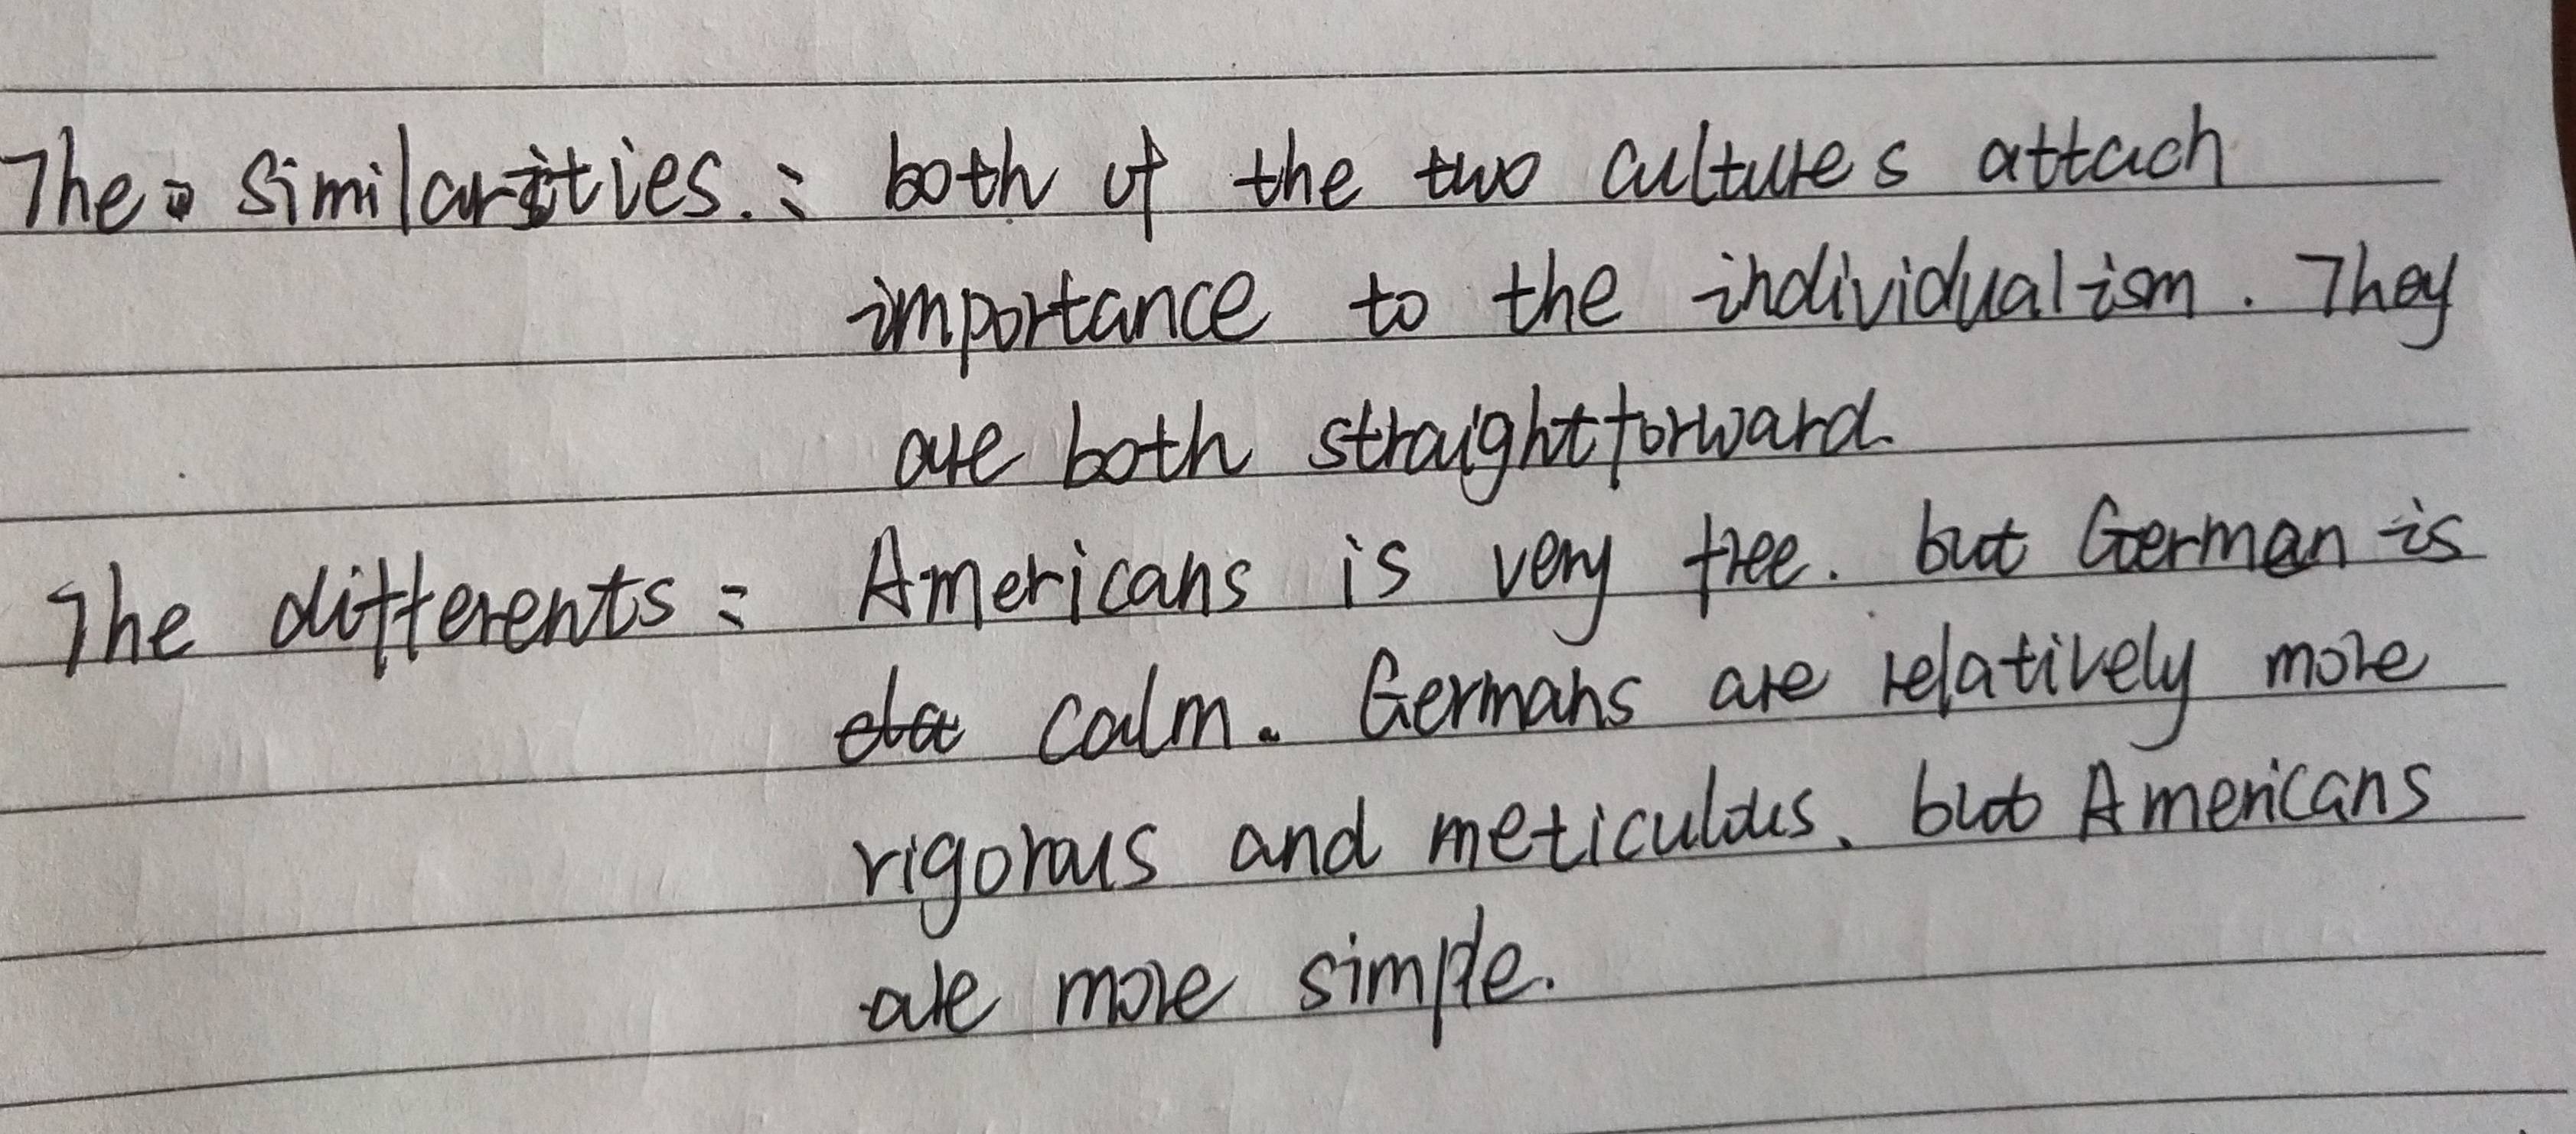 The similarities.: both of the two cultures attach
importance to the individualism. They
are both straightforward.
The differents: Americans is very free. but German is
calm. Germans are relatively more
rigorous and meticulous, but Americans
are more simple.